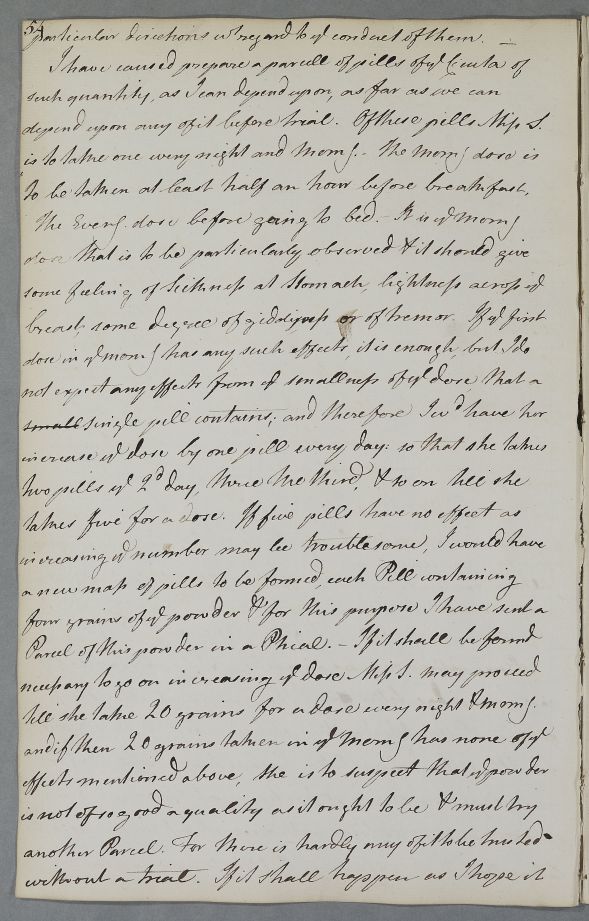 54
particular directions wt regard to ye conduct of them. —
I have caused prepare a parcell of pills of ye Cicuta of
such quantity, as I can depend upon, as far as we can
depend upon any of it before trial. Of these pills Miss S.
is to take one every night and morng. - The morng dose is
to be taken at least half an hour before breakfast,
The Eveng. dose before going to bed. - It is ye morng
dose that is to be particularly observed & it should give
some feeling of Sickness at Stomach, lightness across ye
breast, some degree of giddiness or of tremor. If ye first
dose in ye morng has any such effects, it is enough, but I do
not expect any effects from ye smallness of ye dose that a
small single pill contains; and therefore I wd have her
increase ye dose by one pill every day: so that she takes
two pills ye 2d day, three the third, & so on till she
takes five for a dose. If five pills have no effect as
increasing ye number may be troublesome, I would have
a new mass of pills to be formed, each Pill containing
four grains of ye powder & for this purpose I have sent a
Parcel of this powder in a Phial. - If it shall be found
necessary to go on increasing ye dose Miss S. may proceed
till she take 20 grains for a dose every night & morng.
and if then 20 grains taken in ye morng has none of ye
effects mentioned above, she is to suspect that ye powder
is not of so good a quality as it ought to be & must try
another Parcel. For there is hardly any of it to be trusted
without a trial. If it shall happen as I hope it